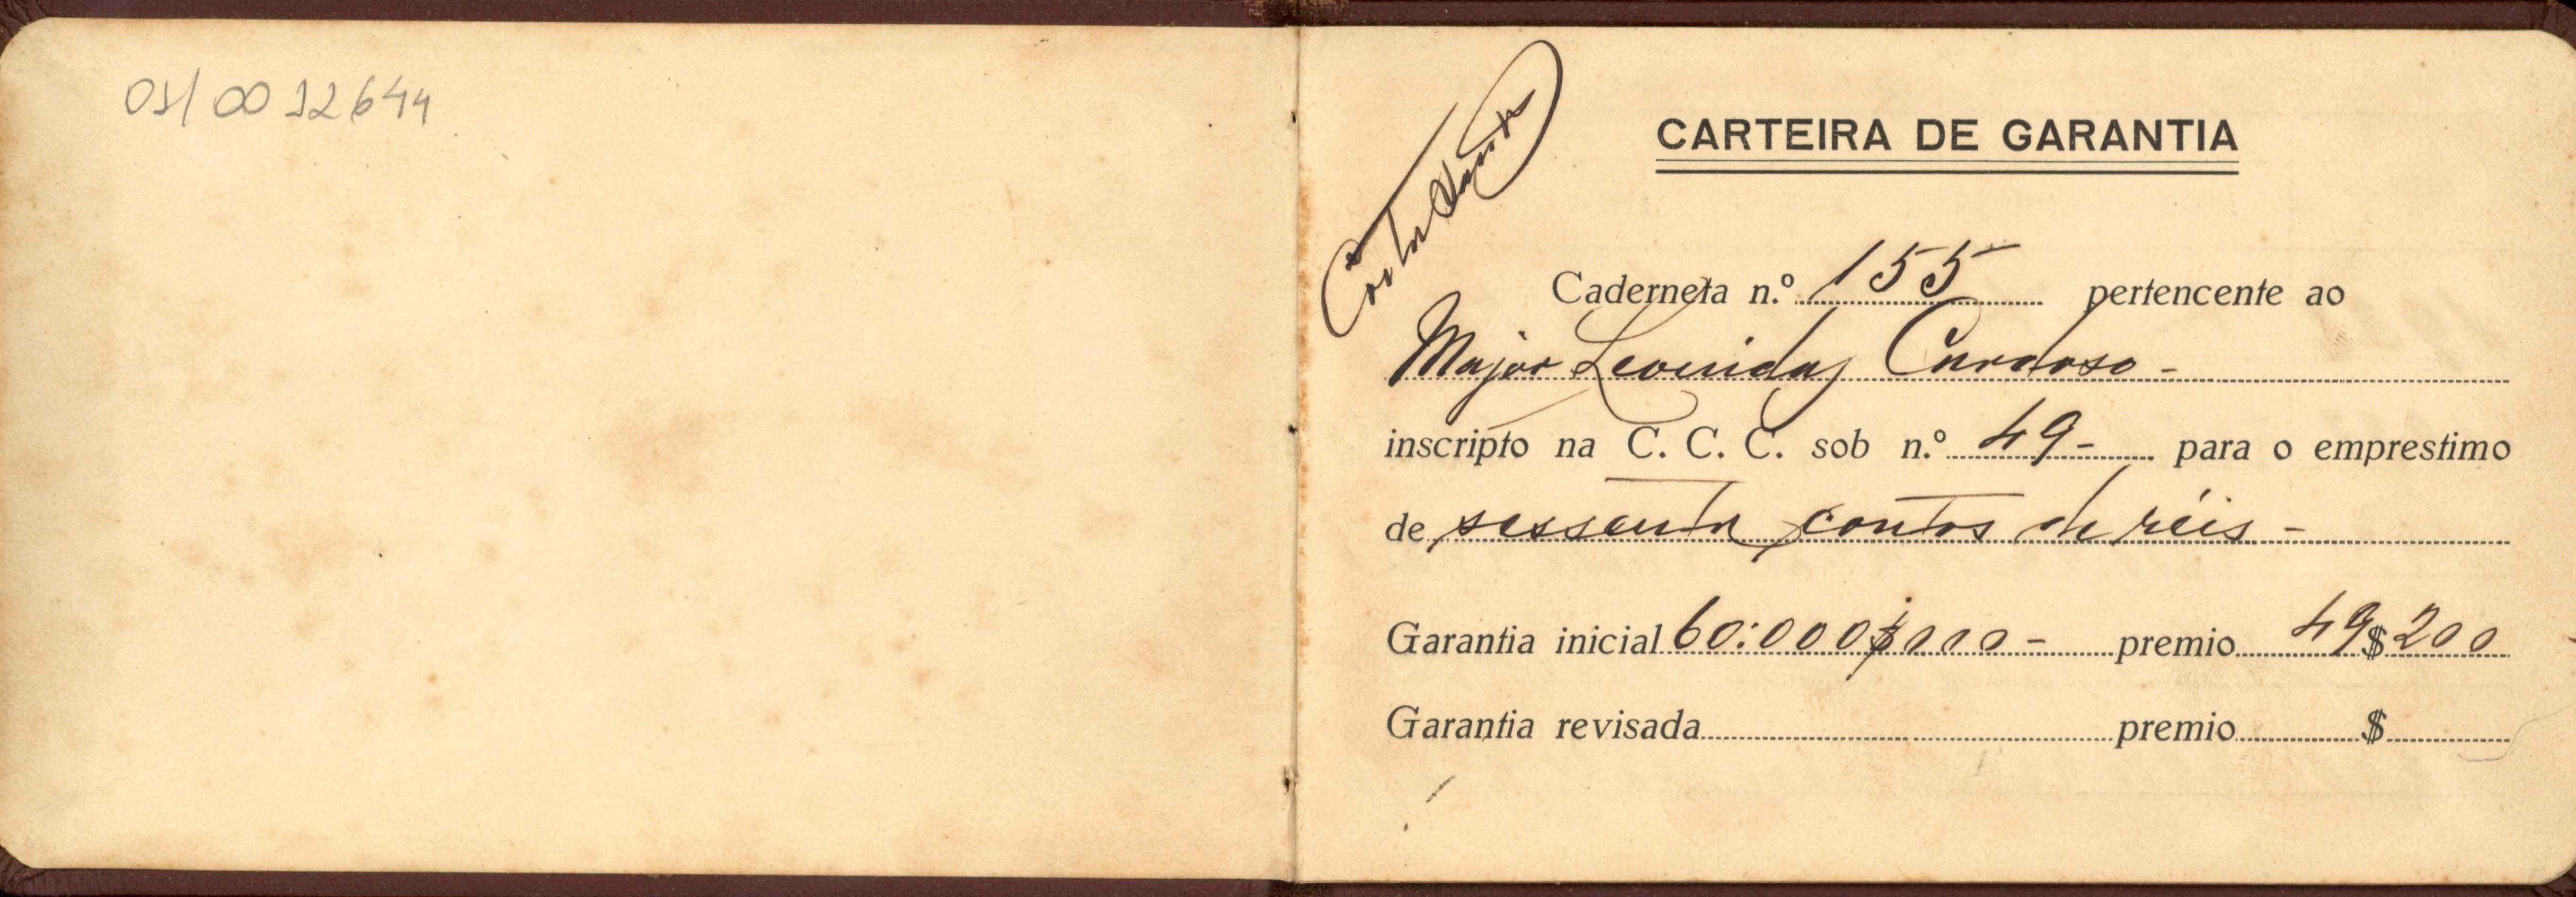 01/0012644
CARTEIRA DE GARANTIA
Caderneta n.º 155 pertencente ao
Major Leonidas Cardoso -
inscripto na C. C. C. sob n.º 49 - para o emprestimo
de sessenta contos de réis -
Garantia inicial 60:000$000 - premio 49$200
Garantia revisada premio $